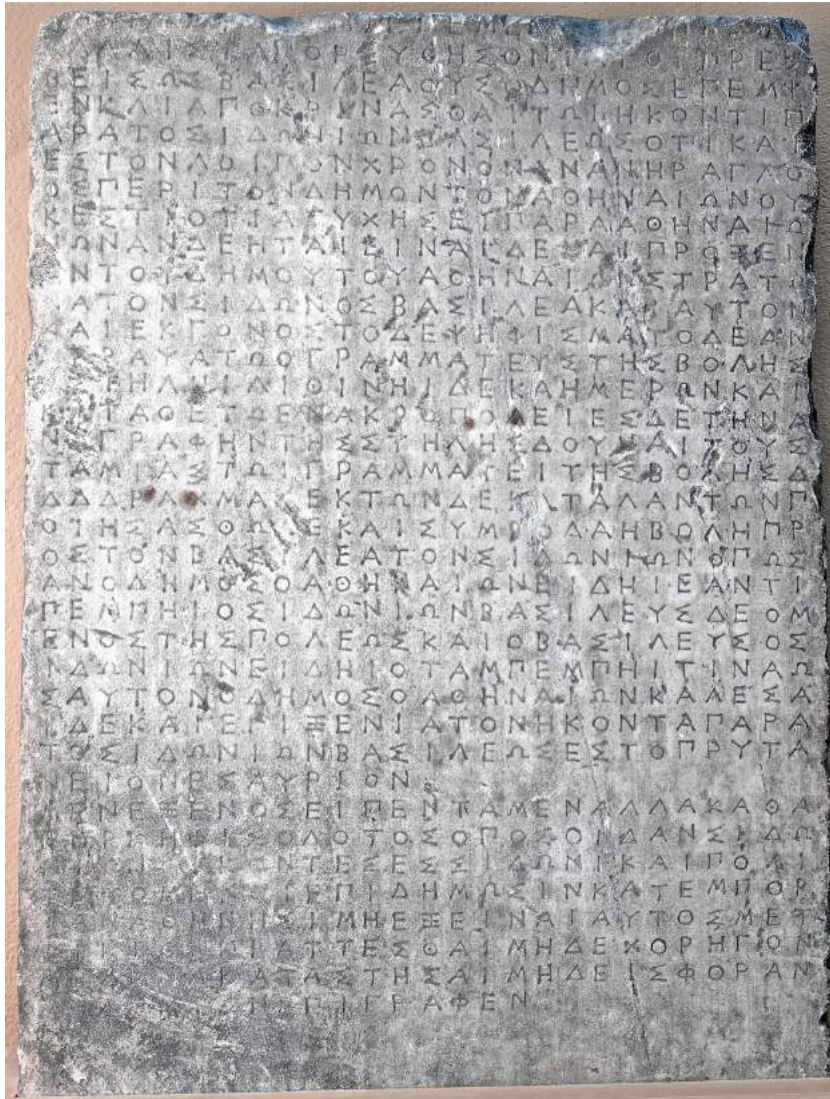 ΛΛΙΣΤΑΠΟΡΕΥΘΗΣΟΝΤΑΙΟΙΠΡΕΣ
ΒΕΙΣΩΣΒΑΣΙΛΕΑΟΥΣΟΔΗΜΟΣΕΠΕΜΨ
ΕΝΚΑΙΑΠΟΚΡΙΝΑΣΘΑΙΤΩΙΗΚΟΝΤΙΠ
ΑΡΑΤΟΣΙΔΩΝΙΩΝΒΑΣΙΛΕΩΣΟΤΙΚΑΙ
ΕΣΤΟΝΛΟΙΠΟΝΧΡΟΝΟΝΩΝΑΝΗΡΑΓΑΘ
ΟΣΠΕΡΙΤΟΝΔΗΜΟΝΤΟΝΑΘΗΝΑΙΩΝΟΥ
ΚΕΣΤΙΟΤΙΑΤΥΧΗΣΕΙΠΑΡΑΑΘΗΝΑΙΩ
ΝΩΝΑΝΔΕΗΤΑΙΕΙΝΑΙΔΕΚΑΙΠΡΟΞΕΝ
ΟΝΤΟΔΗΜΟΥΤΟΥΑΘΗΝΑΙΩΝΣΤΡΑΤΩ
ΝΑΤΟΝΣΙΔΩΝΟΣΒΑΣΙΛΕΑΚΑΙΑΥΤΟΝ
ΚΑΙΕΚΓΟΝΟΣΤΟΔΕΨΗΦΙΣΜΑΤΟΔΕΑΝ
ΑΓΡΑΨΑΤΩΟΓΡΑΜΜΑΤΕΥΣΤΗΣΒΟΛΗΣ
ΕΣΤΗΛΗΙΛΙΘΙΝΗΙΔΕΚΑΗΜΕΡΩΝΚΑΙ
ΚΑΤΑΘΕΤΩΕΝΑΚΡΟΠΟΛΕΙΕΣΔΕΤΗΝΑ
ΝΑΓΡΑΦΗΝΤΗΣΣΤΗΛΗΣΔΟΥΝΑΙΤΟΥΣ
ΤΑΜΙΑΣΤΩΙΓΡΑΜΜΑΤΕΙΤΗΣΒΟΛΗΣΔ
ΔΔΔΡΑΧΜΑΣΕΚΤΩΝΔΕΚΑΤΑΛΑΝΤΩΝΠ
ΟΙΗΣΑΣΘΩΔΕΚΑΙΣΥΜΒΟΛΑΗΒΟΛΗΠΡ
ΟΣΤΟΝΒΑΣΙΛΕΑΤΟΝΣΙΔΩΝΙΩΝΟΠΩΣ
ΑΝΟΔΗΜΟΣΟΑΘΗΝΑΙΩΝΕΙΔΗΙΕΑΝΤΙ
ΠΕΜΠΗΙΟΣΙΔΩΝΙΩΝΒΑΣΙΛΕΥΣΔΕΟΜ
ΕΝΟΣΤΗΣΠΟΛΕΩΣΚΑΙΟΒΑΣΙΛΕΥΣΟΣ
ΙΔΩΝΙΩΝΕΙΔΗΙΟΤΑΜΠΕΜΠΗΙΤΙΝΑΩ
ΣΑΥΤΟΝΟΔΗΜΟΣΟΑΘΗΝΑΙΩΝΚΑΛΕΣΑ
ΙΔΕΚΑΙΕΠΙΞΕΝΙΑΤΟΝΗΚΟΝΤΑΠΑΡΑ
ΤΟΣΙΔΩΝΙΩΝΒΑΣΙΛΕΩΣΕΣΤΟΠΡΥΤΑ
ΝΕΙΟΝΕΣΑΥΡΙΟΝ
ΜΕΝΕΞΕΝΟΣΕΙΠΕΝΤΑΜΕΝΑΛΛΑΚΑΘΑ
ΠΕΡΚΗΦΙΣΟΔΟΤΟΣΟΠΟΣΟΙΔΑΝΣΙΔΩ
ΝΤΕΣΕΣΣΙΔΩΝΙΚΑΙΠΟΛΙ
ΕΠΙΔΗΜΩΣΙΝΚΑΤΕΜΠΟΡ
ΝΗΣΙΜΗΕΞΕΙΝΑΙΑΥΤΟΣΜΕΤ
ΑΤΤΕΣΘΑΙΜΗΔΕΧΟΡΗΓΟΝ
ΚΑΤΑΣΤΗΣΑΙΜΗΔΕΙΣΦΟΡΑΝ
ΕΠΙΓΡΑΦΕΝ